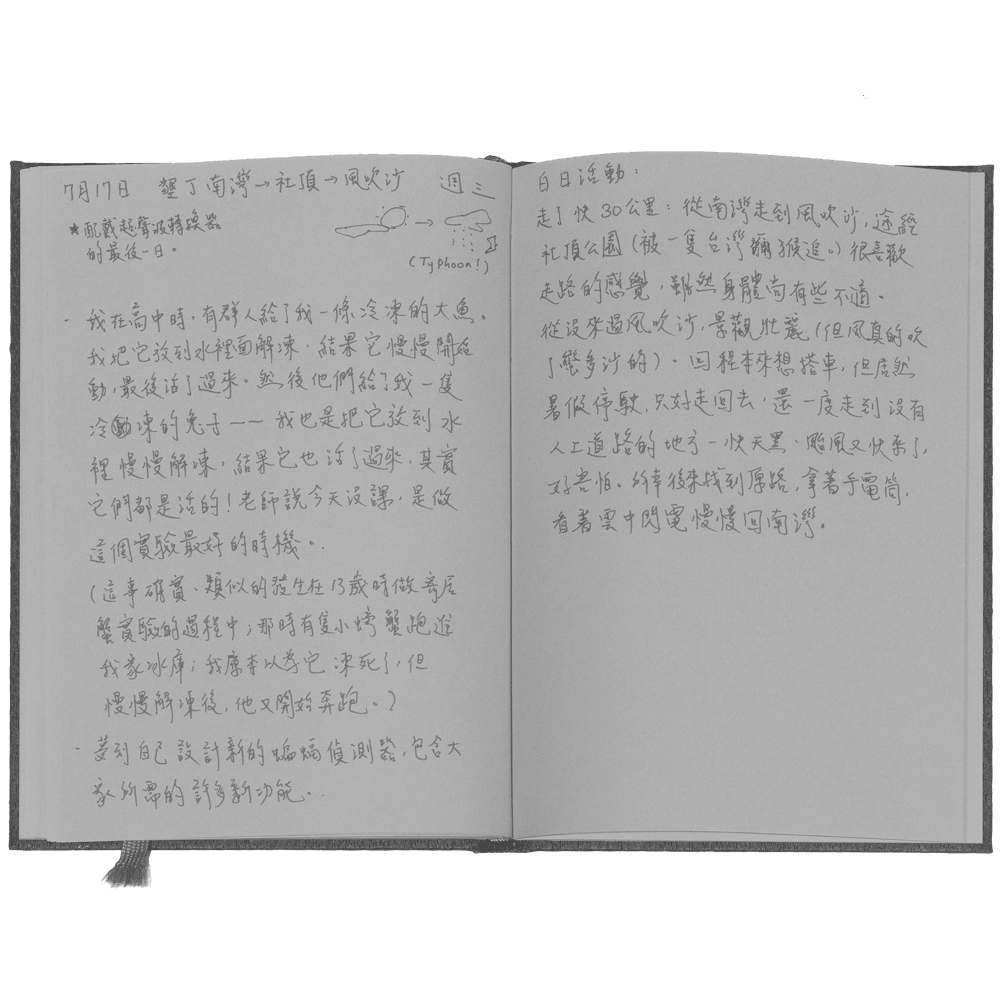 7月17日 墾丁南灣→社頂→風吹沙 週三
★配戴超聲波轉換器
的最後一日。
(Typhoon!)
· 我在高中時,有群人給了我一條冷凍的大魚。
我把它放到水裡面解凍,結果它慢慢開始
動,最後活了過來。然後他們給了我一隻
冷凍的兔子——我也是把它放到水
裡慢慢解凍,結果它也活了過來,其實
它們都是活的!老師說今天沒課,是做
這個實驗最好的時機。
(這事確實、類似的發生在13歲時做寄居
蟹實驗的過程中;那時有隻小螃蟹跑進
我家冰庫;我原本以為它凍死了,但
慢慢解凍後,他又開始奔跑。)
· 夢到自己設計新的蝙蝠偵測器,包含大
家所需的許多新功能。
白日活動:
走了快30公里:從南灣走到風吹沙,途經
社頂公園(被一隻台灣獼猴追。)很喜歡
走路的感覺,雖然身體尚有些不適。
從沒來過風吹沙,景觀壯麗(但風真的吹
了蠻多沙的)。回程本來想搭車,但居然
暑假停駛,只好走回去,還一度走到沒有
人上道路的地方—快天黑、颱風又快來了,
好害怕。所幸後來找到原路,拿著手電筒,
看著雲中閃電慢慢回南灣。